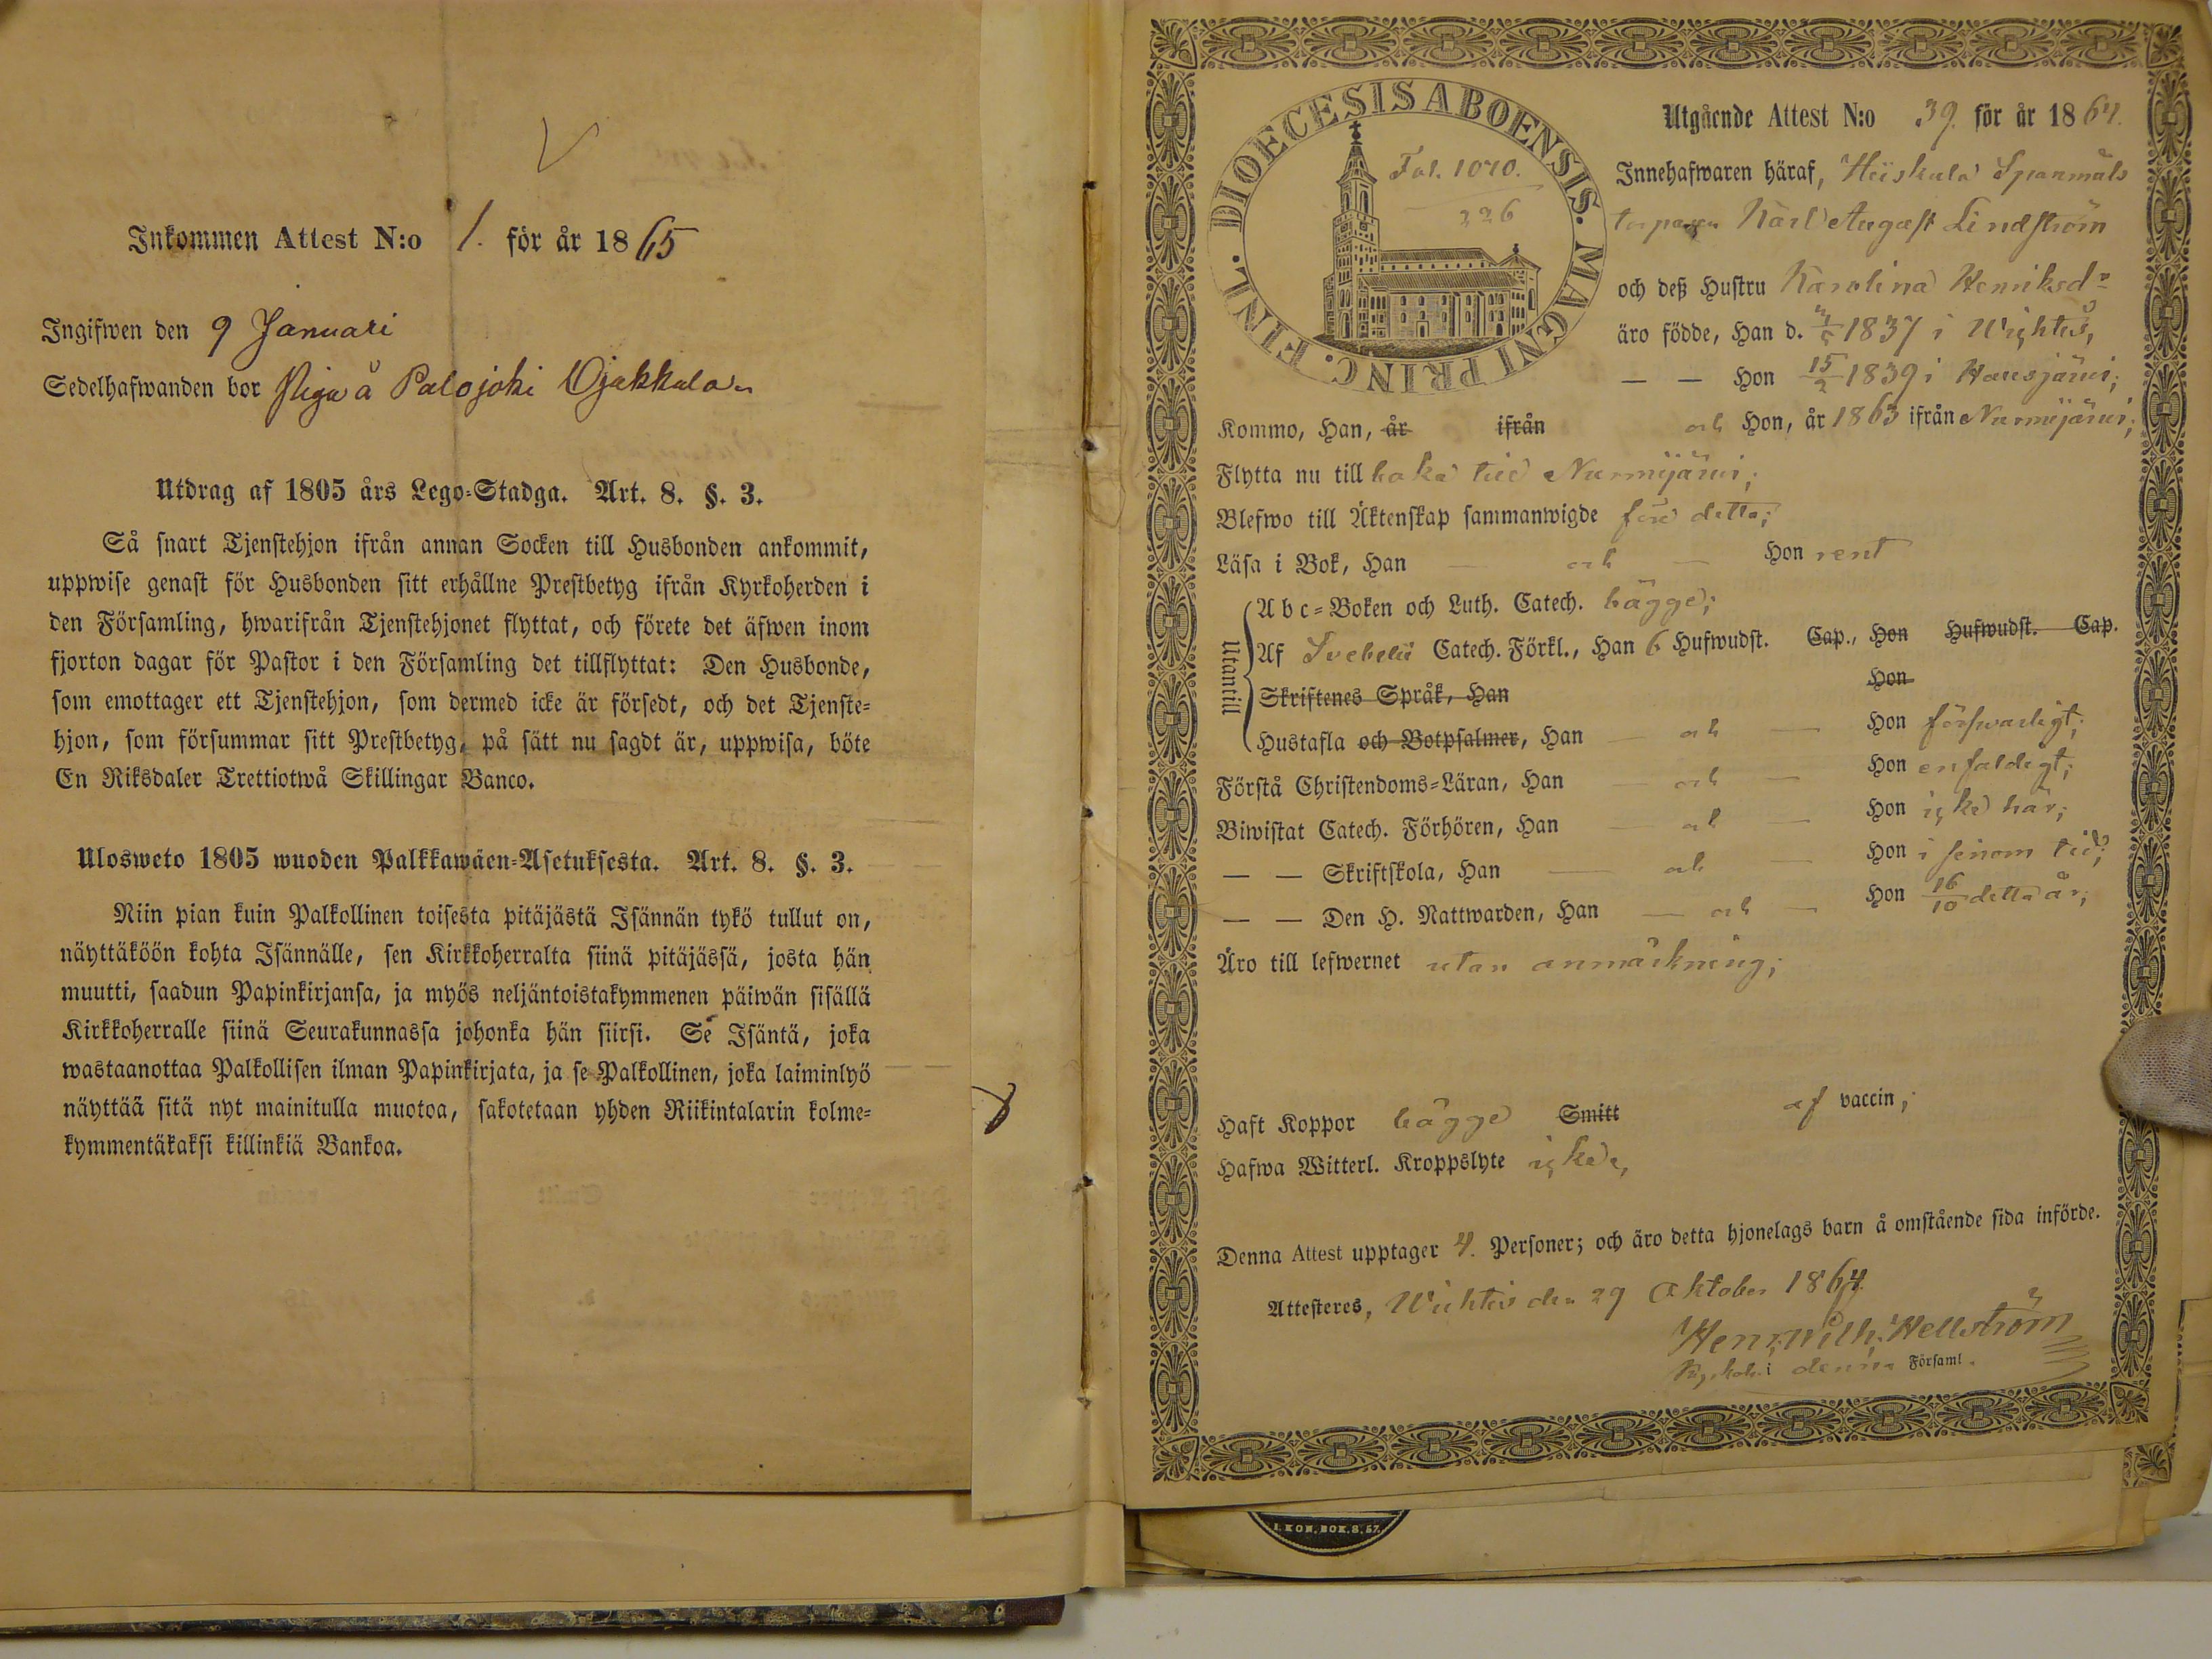 Inkommen Attest N:o 1. för år 1865
Ingifwen den 9 Januari
Sedelhafwanden bor Piga å Palojoki Ojakkala
Utdrag af 1805 års Lego-Stadga. Art. 8. §. 3.
Så snart Tjenstehjon ifrån annan Socken till Husbonden ankommit,
uppwise genast för Husbonden sitt erhållne Prestbetyg ifrån Kyrkoherden i
den Församling, hwarifrån Tjenstehjonet flyttat, och förete det äfwen inom
fjorton dagar för Pastor i den Församling det tillflyttat: Den Husbonde,
som emottager ett Tjenstehjon, som dermed icke är försedt, och det Tjenste-
hjon, som försummar sitt Prestbetyg, på sätt nu sagdt är, uppwisa, böte
En Riksdaler Trettiotwå Skillingar Banco.
Ulosweto 1805 wuoden Palkkawäen-Asetuksesta. Art. 8. §. 3.
Niin pian kuin Palkollinen toisesta pitäjästä Isännän tykö tullut on,
näyttäköön kohta Isännälle, sen Kirkkoherralta siinä pitäjässä, josta hän
muutti, saadun Papinkirjansa, ja myös neljäntoistakymmenen päiwän sisällä
Kirkkoherralle siinä Seurakunnassa johonka hän siirsi. Se Isäntä, joka
wastaanottaa Palkollisen ilman Papinkirjata, ja se Palkollinen, joka laiminlyö
näyttää sitä nyt mainitulla muotoa, sakotetaan yhden Riikintalarin kolme-
kymmentäkaksi killinkiä Bankoa.
DIOECESIS ABOENSIS. MAGNI PRINC. FINL.
Fol. 1070.
326
Utgående Attest N:o 39. för år 1864.
Innehafwaren häraf, Heiskala Spanmåls
torparen Karl August Lindström
och deß Hustru Karolina Henriksdr
äro födde, Han d. 1837 i Wichtis,
— — Hon 15/2 1839 i Hausjärwi;
Kommo, Han, år ifrån och Hon, år 1863 ifrån Nurmijärwi;
Flytta nu till baka till Nurmijärwi;
Blefwo till Äktenskap sammanwigde före detta;
Läsa i Bok, Han — och — Hon rent
Utantill
Abc-Boken och Luth. Catech. bägge;
Af Svebelii Catech. Förkl., Han 6 Hufwudst. Cap., Hon Hufwudst. Cap.
Skriftenes Språk, Han Hon
Hustafla och Botpsalmer, Han — och — Hon förswarligt;
Förstå Christendoms-Läran, Han — och — Hon enfaldigt;
Biwistat Catech. Förhören, Han — och — Hon icke här;
— — Skriftskola, Han — och — Hon i sinom tid;
— — Den H. Nattwarden, Han — och — Hon 16/10 detta år;
Äro till lefwernet utan anmärkning;
Haft Koppor bägge Smitt af vaccin;
Hafwa Witterl. Kroppslyte icke,
Denna Attest upptager 4. Personer; och äro detta hjonelags barn å omstående sida införde.
Attesteres, Wichtis den 29 Oktober 1864.
Henr. Wilh. Hellström
Kyrkoh. i denna Församl.
I. KON. BOK. 8. 57.